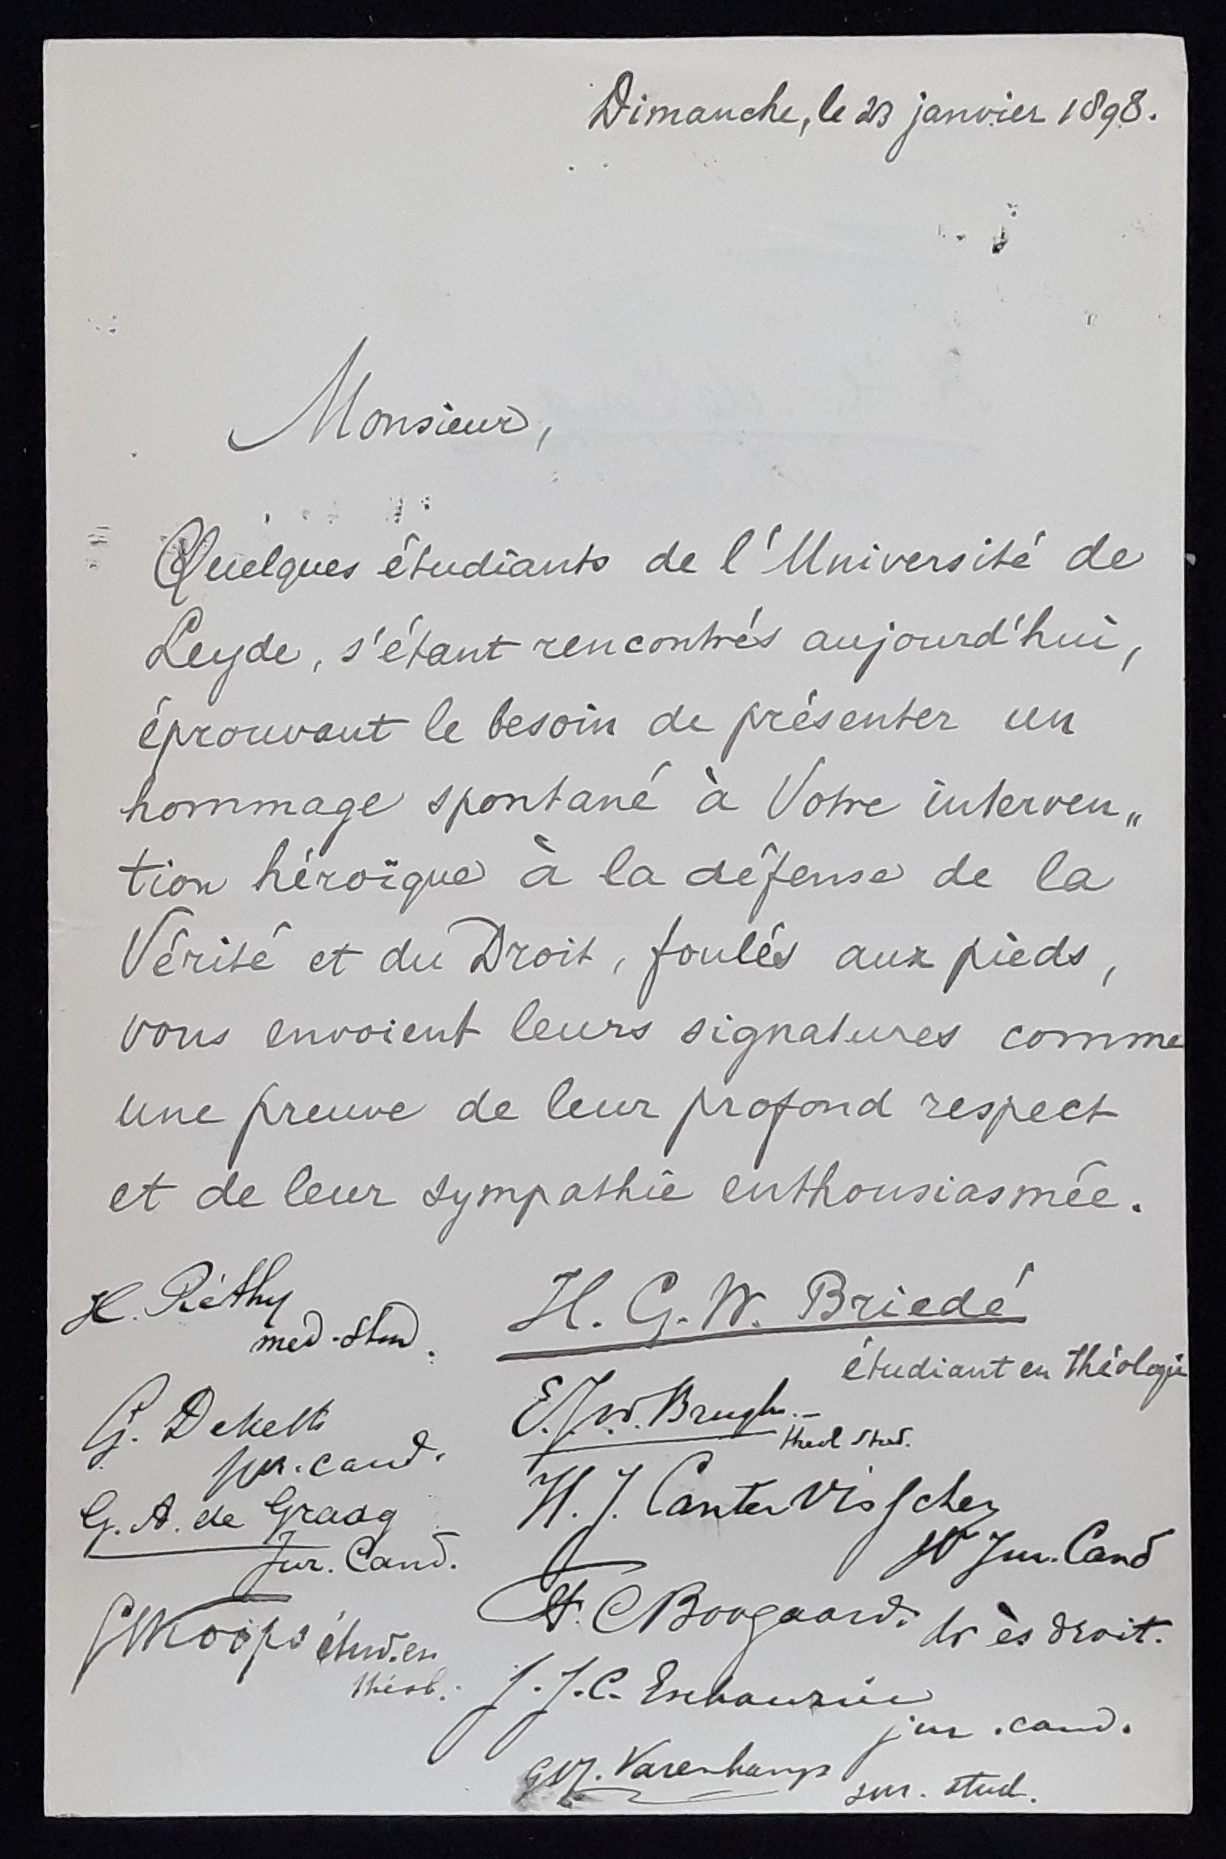 Dimanche, le 23 janvier 1898.
Monsieur,
Quelques étudiants de l'Université de
Leyde, s'étant rencontrés aujourd'hui,
éprouvant le besoin de présenter un
hommage spontané à Votre interven„
tion héroïque à la défense de la
Vérité et du Droit, foulés aux pieds,
vous envoient leurs signatures comme
une preuve de leur profond respect
et de leur sympathie enthousiasmée.
H. Réthy
med. stud.
H. G. W. Briedé
étudiant en théologie
G. Dekelt
jur. cand.
E. J. W. Brugh
theol stud.
G. A. de Graag
Jur. Cand.
H. J. Canter Visscher
Jur. Cand
H. C Boogaard. dr ès droit.
étud. en
théol.
J. J. C.
jur. cand.
Varenkamp
jur. stud.